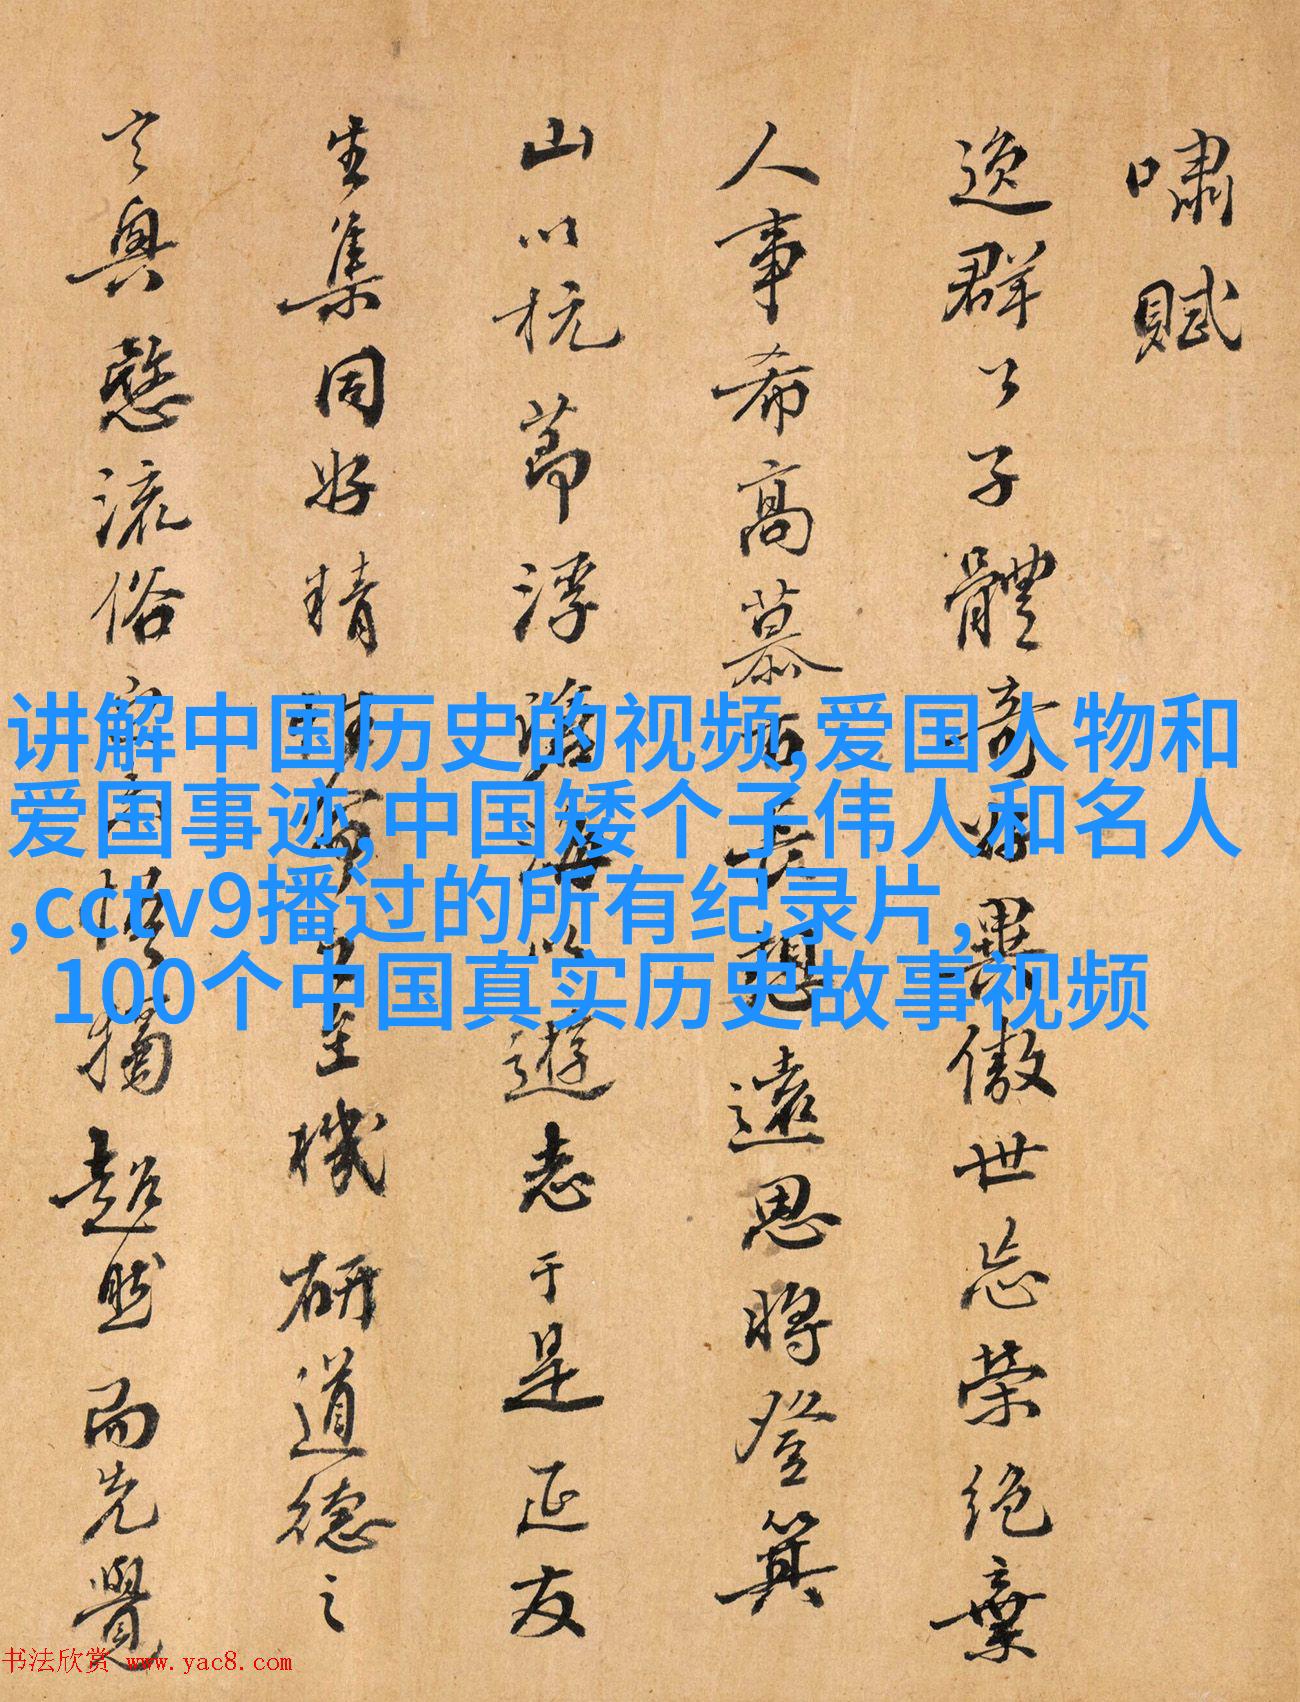 嘯賦
逸群公子體奇好異傲世忘榮絕棄
人事希高慕古長想遠思將登箕
山以抗節浮滄海以遊志于是延友
生集同好精性命之至機研道德之
玄奧愍流俗未悟獨超然而先覺
讲解中国历史的视频,爱国人物和
爱国事迹,中国矮个子伟人和名人
,cctv9播过的所有纪录片,
100个中国真实历史故事视频
书法欣赏 www.yac8.com